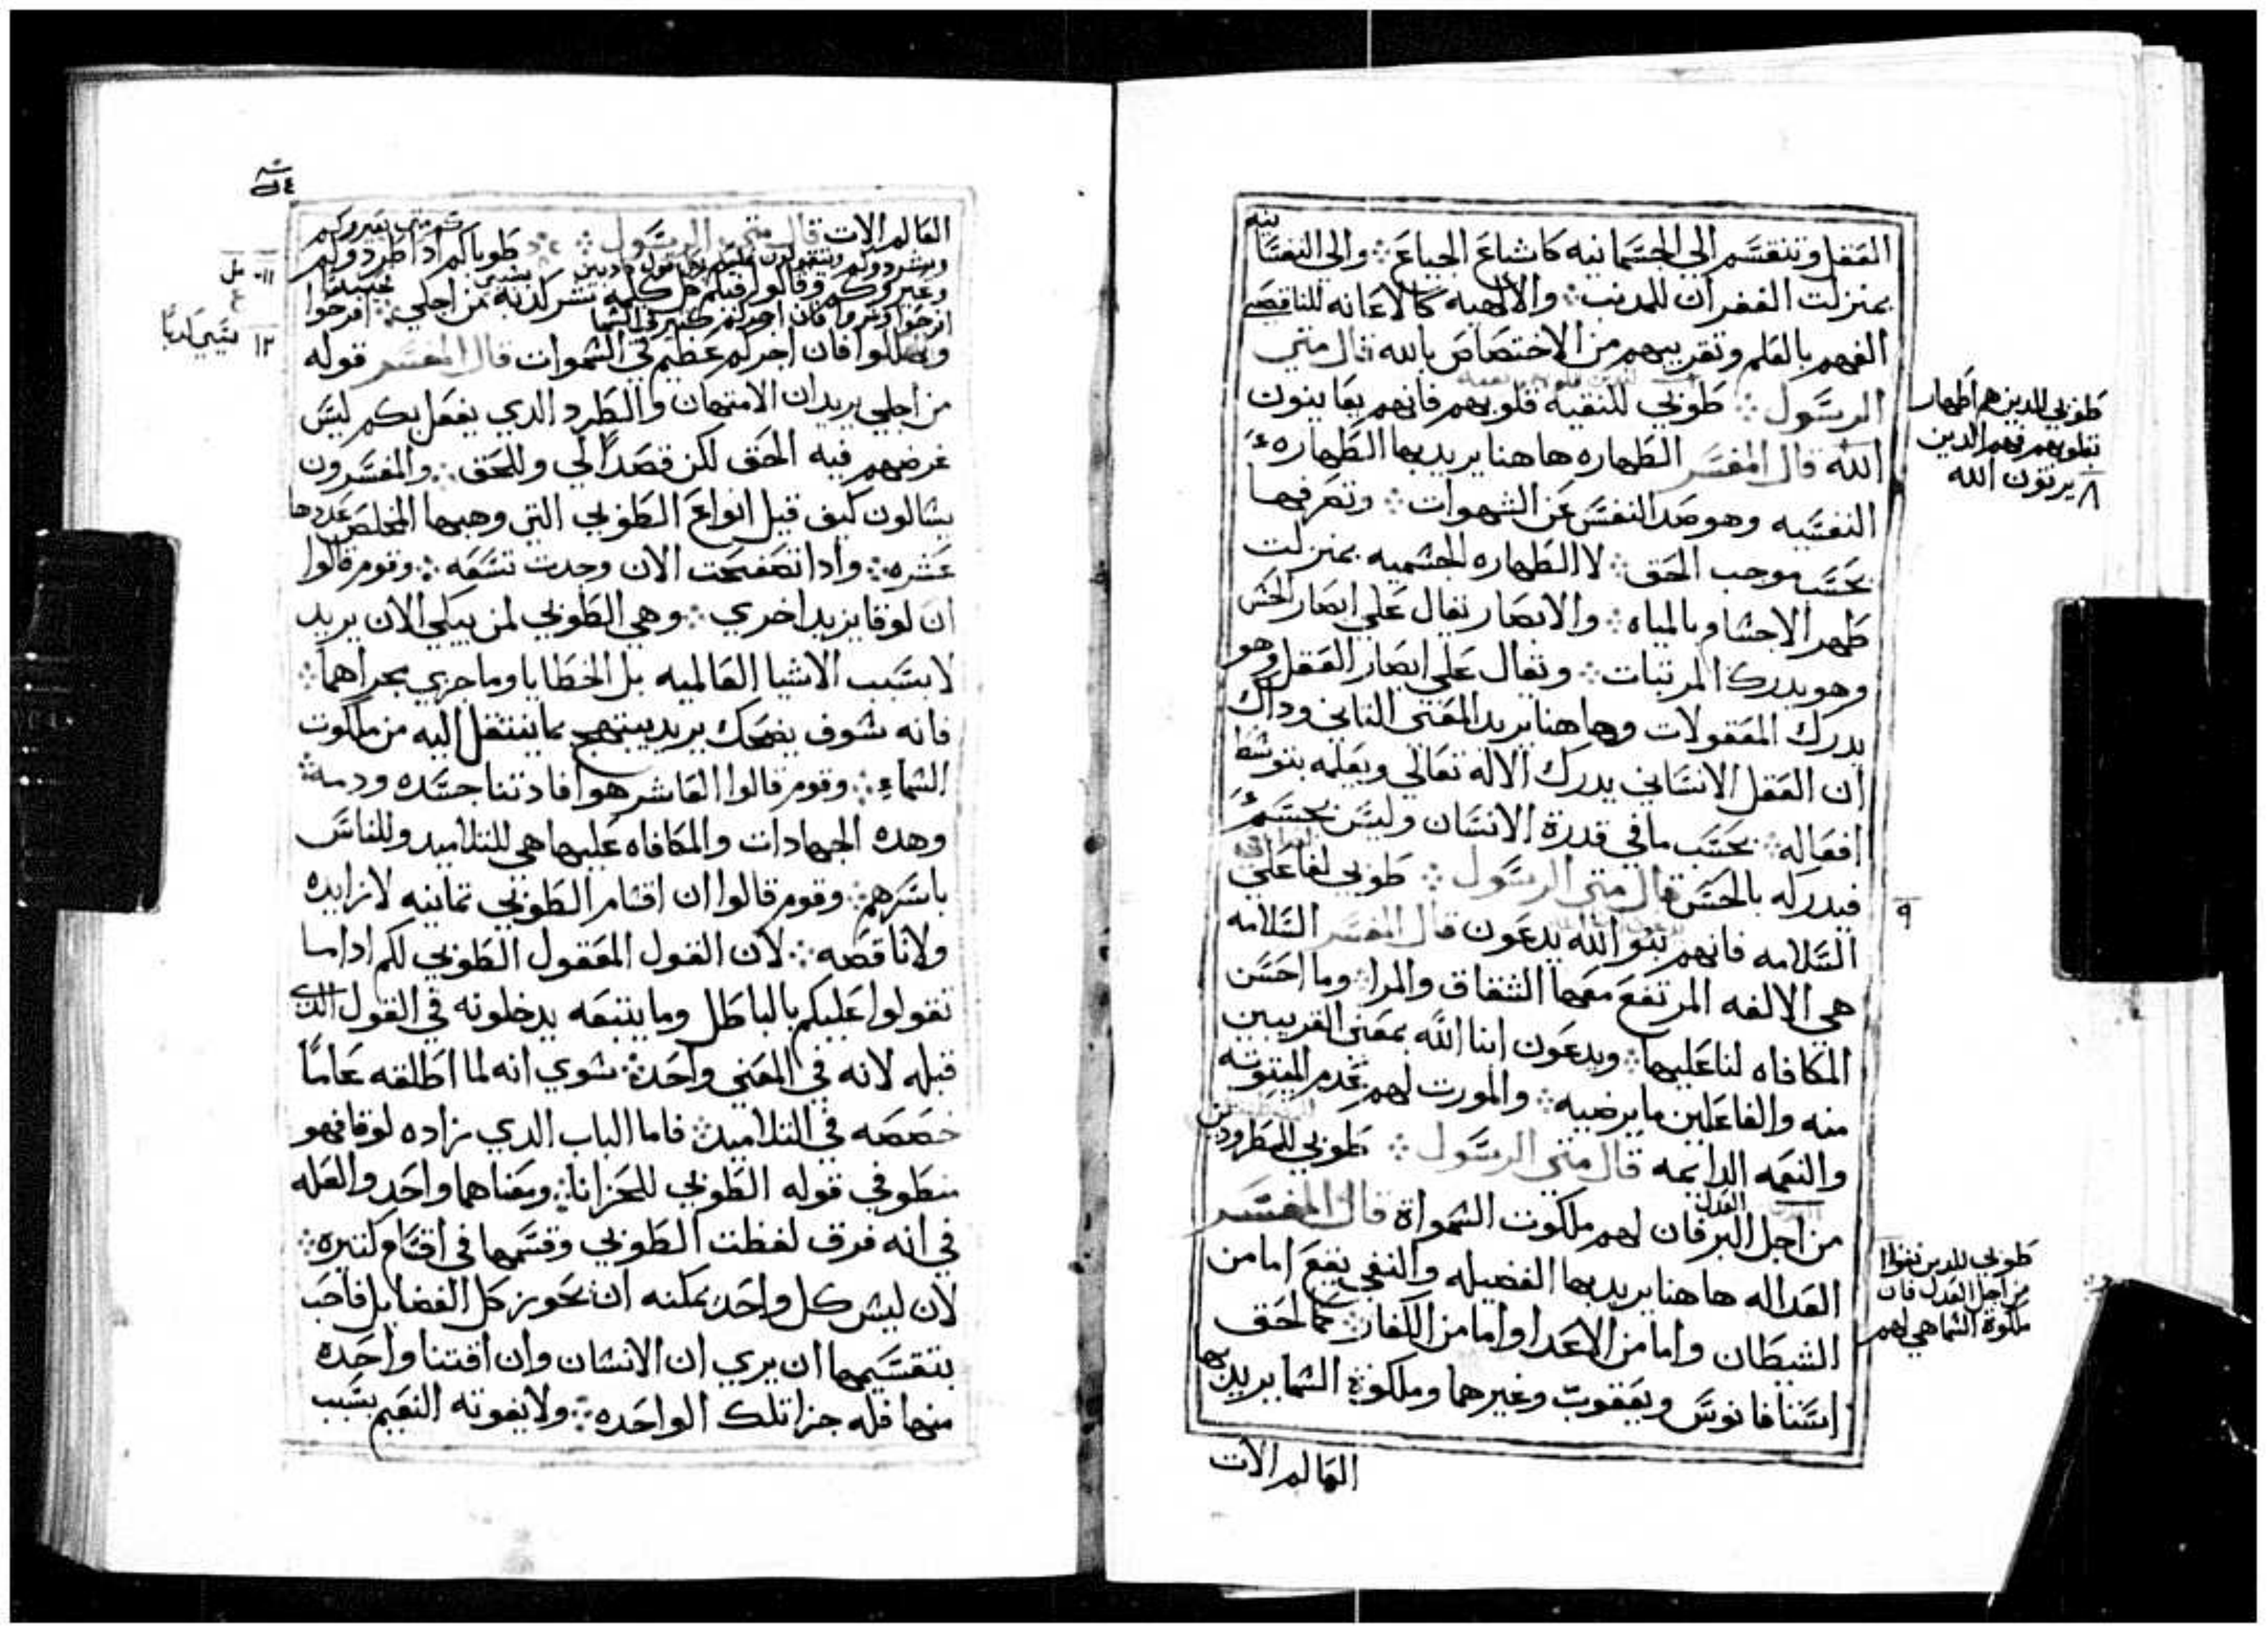 العقل وتنقسم الي الجسمانيه كاشباع الجياع ܀ والي النفسانيه
بمنزلت الغفران للمدنب ܀ والالاهيه كالاعانه للناقصي
الفهم بالعلم وتقريبهم من الاختصاص بالله قال متي
الرسول ܀ طوبي للنقيه قلوبهم فانهم يعاينون
الله قال المفسر الطهاره هاهنا يريد بها الطهاره
النفسيه وهو صد النفس عن الشهوات ܀ وتصرفها
بحسب موجب الحق ܀ لا الطهاره الجسميه بمنزلت
طهر الاجسام بالمياه ܀ والابصار تقال علي ابصار الحس
وهو يدرك المرتيات ܀ وتقال علي ابصار العقل وهو
يدرك المعقولات وهاهنا يريد المعني التاني وداك
ان العقل الانساني يدرك الاله تعالي ويعلمه بتوسط
افعاله ܀ بحسب ما في قدرة الانسان وليس بجسم
فيدركه بالحس قال متي الرسول ܀ طوبي لفاعلي
السلامه فانهم بنو الله يدعون قال المفسر السلامه
هي الالفه المرتفع معها الشقاق والمرا وما احسن
المكافاه لنا عليها ܀ ويدعون ابنا الله بمعني القريبين
منه والفاعلين ما يرضيه ܀ والمورت لهم عدم الميتوته
والنعمه الدايمه قال متي الرسول ܀ طوبي للمطرودين
من اجل البر فان لهم ملكوت السمواة قال المفسر
العدل
العداله هاهنا يريد بها الفضيله والنفي يقع اما من
الشيطان واما من الاعدا واما من الكفار ܀ كما لحق
استنافانوس ويعقوب وغيرهما وملكوة السما يريد بها
العالم الات
طوبي للدين هم اطهار
بقلوبهم فهم الدين
٨ يرتون الله
٩
طوبي للدين نفوا
من اجل العدل فان
ملكوة السما هي لهم
العالم الات قال متي الرسول ܀ طوباكم ادا طردوكم
وعيروكم وقالوا فيكم كل كلمه شر كدبه من اجلي ܀ افرحوا
وتهللوا فان اجركم عظيم في السموات قال المفسر قوله
من اجلي يريد ان الامتهان والطرد الدي يفعل بكم ليس
غرضهم فيه الحق لكن قصدا لي وللحق ܀ والمفسرون
يسالون كيف قيل انواع الطوبي التي وهبها المخلص عددها
عشره ܀ وادا تصفحت الان وجدت تسعه ܀ وقوم قالوا
ان لوقا يزيد اخري ܀ وهي الطوبي لمن يبكي الان يريد
لا بسبب الاشيا العالميه بل الخطايا وما جري مجراهما ܀
فانه سوف يضحك يريد يبتهج بما ينتقل اليه من ملكوت
السماء ܀ وقوم قالوا العاشر هو افادتنا جسده ودمه ܀
وهده الجهادات والمكافاه عليها هي للتلاميد وللناس
باسرهم ܀ وقوم قالوا ان اقسام الطوبي تمانيه لا زايده
ولا ناقصه ܀ لان القول المعقول الطوبي لكم ادا ما
تقولوا عليكم بالباطل وما يتبعه يدخلونه في القول الدي
قبله لانه في المعني واحده ܀ سوي انه لما اطلقه عاما
خصصه في التلاميد ܀ فاما الباب الدي زاده لوقا فهو
منطوفي قوله الطوبي للحزانا ܀ ومعناهما واحد والعله
في انه فرق لفظت الطوبي وقسمها في اقسام كتيره ܀
لان ليس كل واحد يمكنه ان يحوز كل الفضايل فاحب
بتقسيمها ان يري ان الانسان وان اقتنا واحده
منها فله جزا تلك الواحده ܀ ولا يفوته النعيم بسبب
١١
١٢